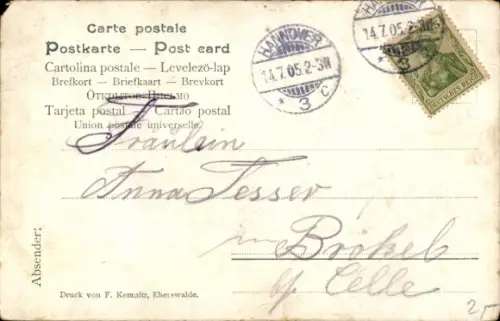 Carte postale
Postkarte — Post card
Cartolina postale — Levelező-lap
Brefkort — Briefkaart — Brevkort
Открытое Письмо
Tarjeta postal — Cartão postal
Union postale universelle.
HANNOVER
14.7.05.2-3N
* 3 c
HANNOVER
14.7.05.2-3N
3
DEUTSCHES
Fräulein
Anna Tesser
in Brökel
b/ Celle
Absender:
Druck von F. Kemnitz, Eberswalde.